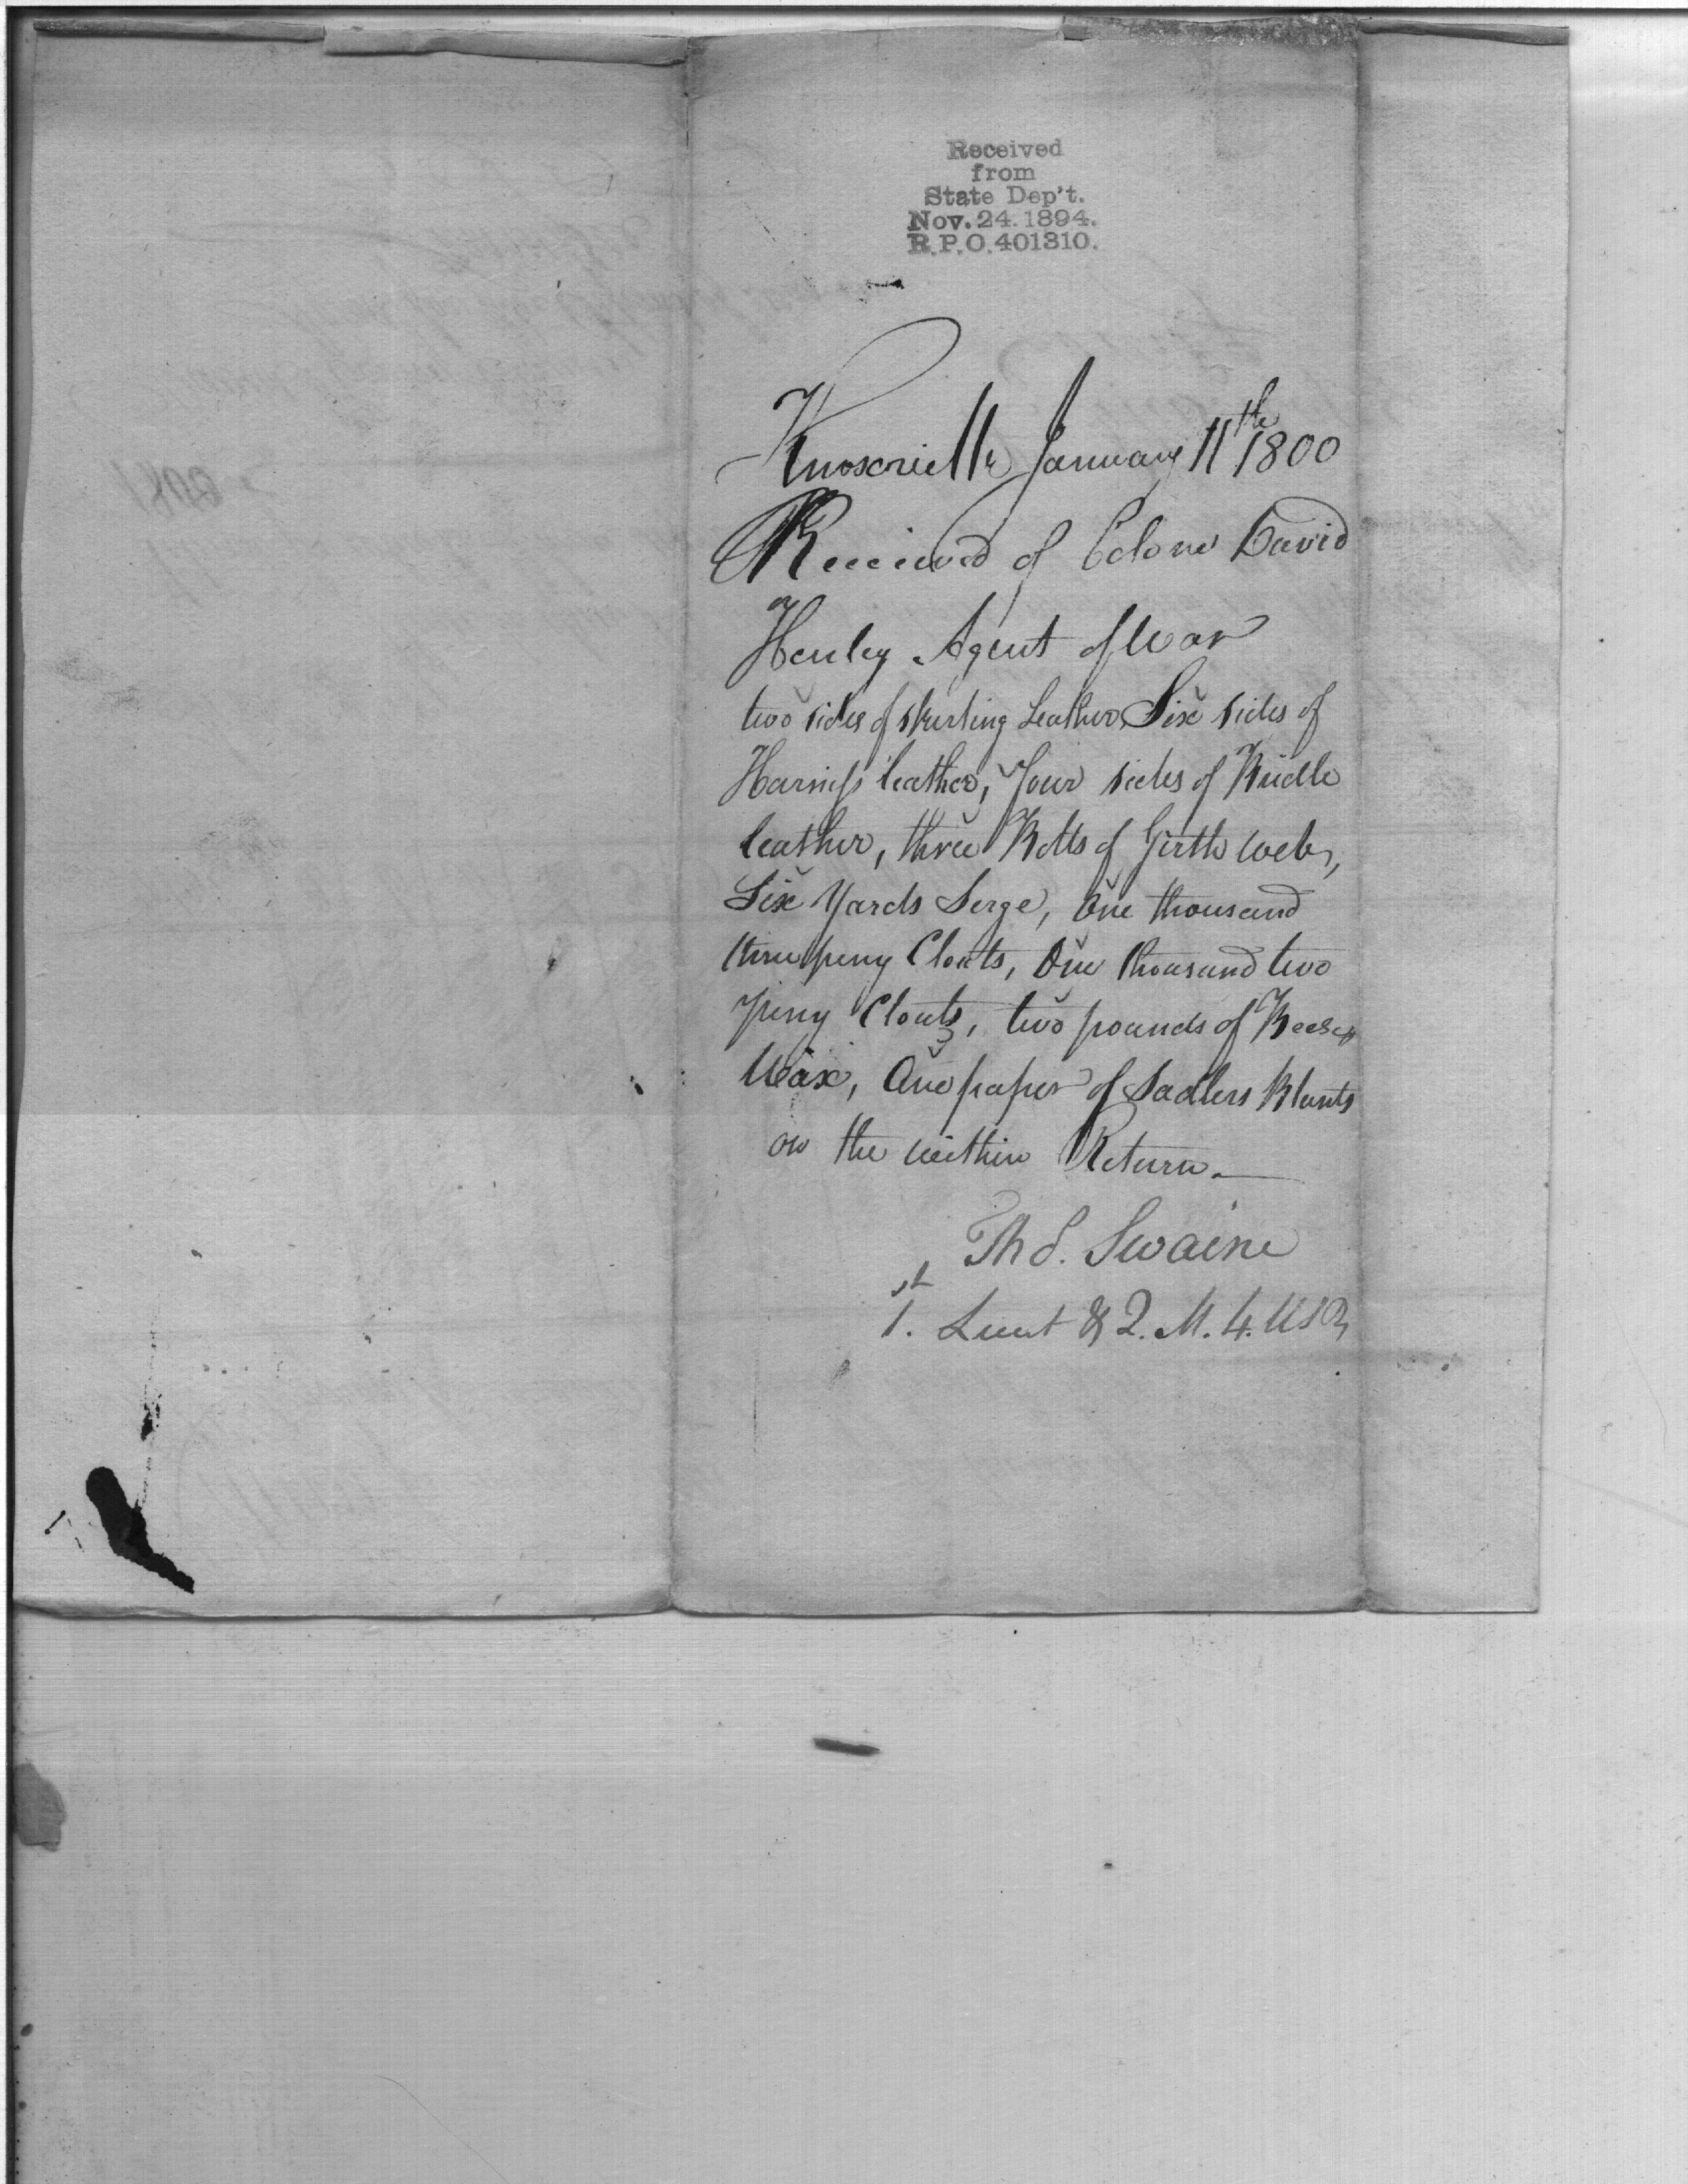 Received
from
State Dep't.
Nov. 24. 1894.
R.P.O. 401310.
Knoxville January 11th 1800
Received of Colone David
Henley Agent of War
two sides of skirting Leather, Six sides of
Harness leather, four sides of Bridle
leather, three Bolts of Girth web,
Six Yards Serge, One thousand
three peny Clouts, One thousand two
peny Clouts, two pounds of Bees
Wax, One paper of Sadlers Blunts
on the within Return.
Th S. Swaine
1st. Lieut & Q. M. 4. USR